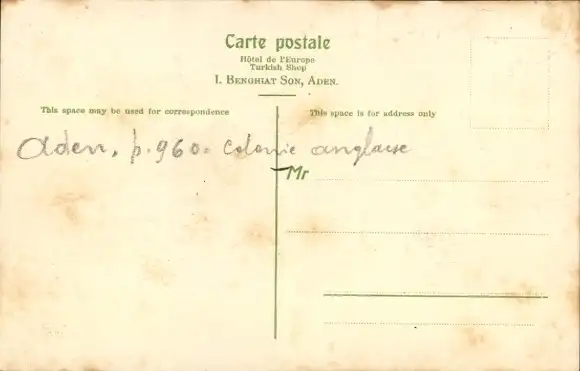 Carte postale
Hôtel de l'Europe
Turkish Shop
I. BENGHIAT SON, ADEN.
This space may be used for correspondence
This space is for address only
Aden, p. 960. Colonie anglaise
Mr